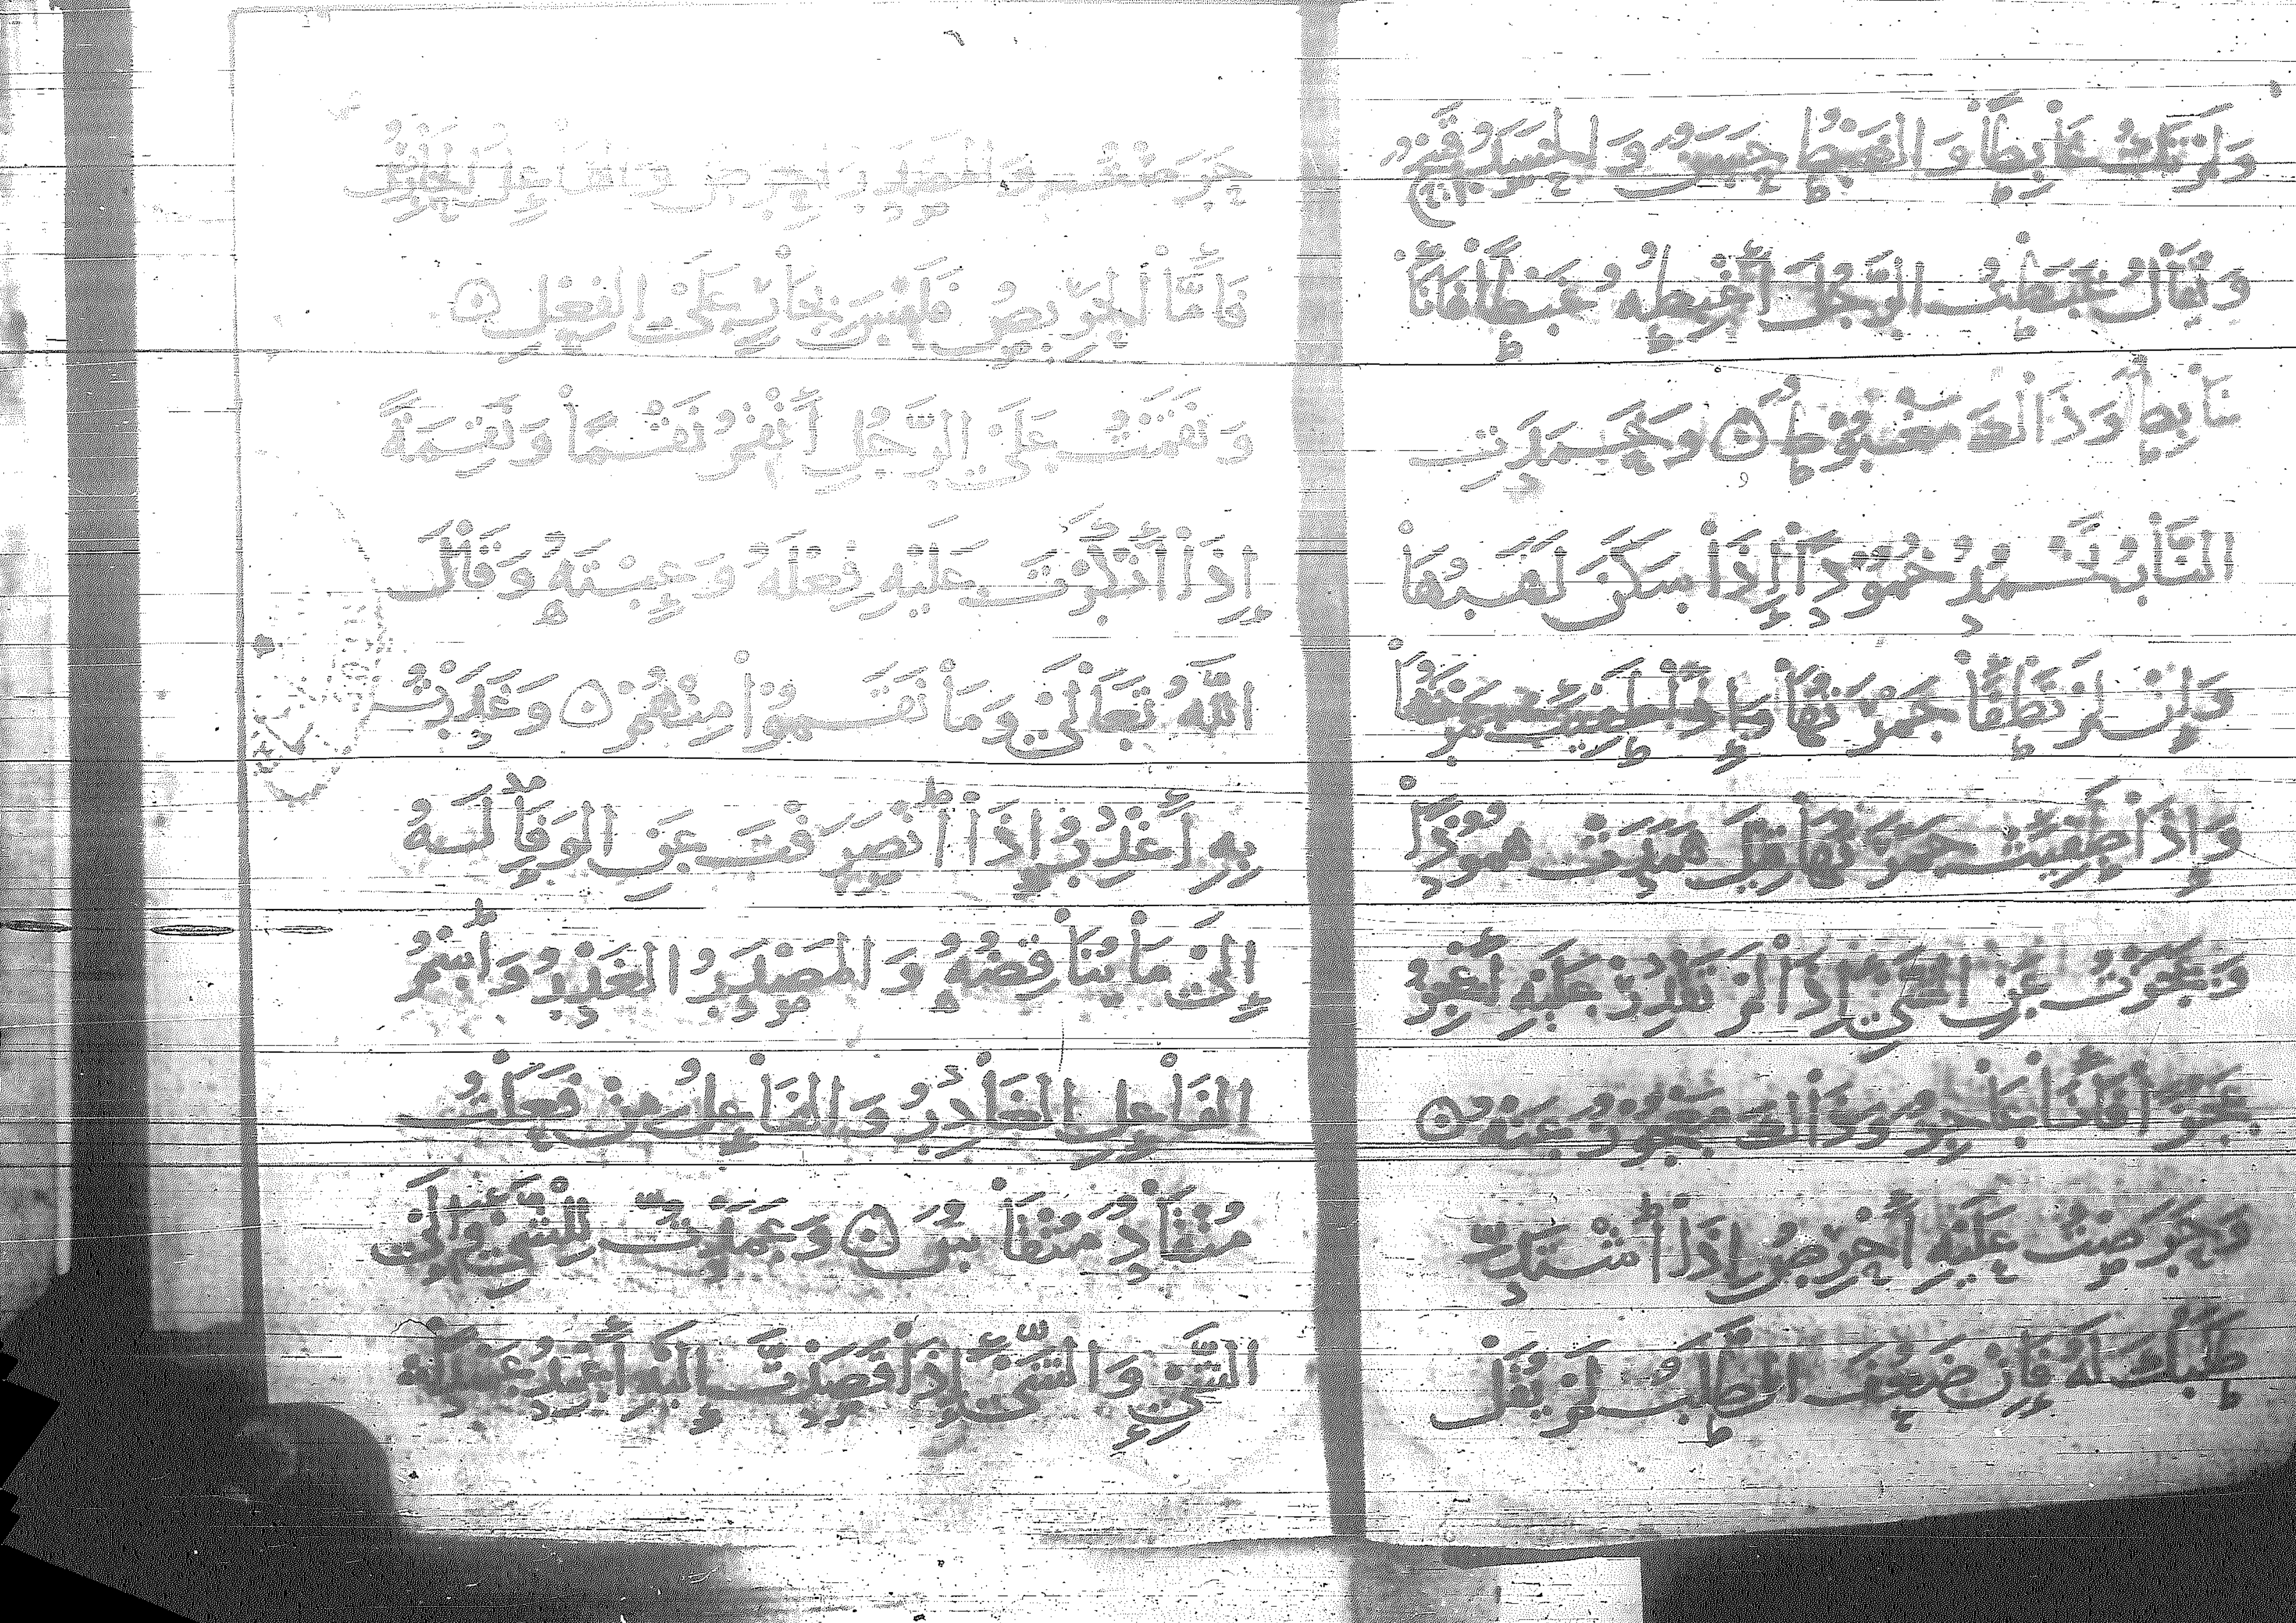 وَلَمْ تَكُ غَابِطاً وَالغَبْطُ حَسَنٌ وَالحَسَدُ
وَيُقَالُ غَبَطْتُ الرَّجُلَ أَغْبِطُهُ غَبْطاً فَأَنَا
غَابِطٌ وَذَاكَ مَغْبُوطٌ ۞ وَخَمَدَتِ
النَّارُ تَخْمُدُ خُمُوداً إِذَا سَكَنَ لَهَبُهَا
وَإِنْ لَمْ يُطْفَأْ جَمْرُهَا وَإِذَا
وَإِذَا طَفِئَتْ جَمْرَتُهَا قِيلَ هَمَدَتْ هُمُوداً
وَعَجَزْتُ عَنِ الشَّيْءِ إِذَا لَمْ تَقْدِرْ عَلَيْهِ أَعْجِزُ
عَجْزاً فَأَنَا عَاجِزٌ وَذَاكَ مَعْجُوزٌ عَنْهُ ۞
وَحَرَصْتُ عَلَيْهِ أَحْرِصُ إِذَا اشْتَدَّ
طَلَبُكَ لَهُ فَإِنْ ضَعُفَ الطَّلَبُ لَمْ يُقَلْ
حَرَصْتُ وَالمَصْدَرُ الحِرْصُ وَالفَاعِلُ
فَأَمَّا الحَرِيصُ فَلَيْسَ بِجَارٍ عَلَى الفِعْلِ ۞
وَنَقَمْتُ عَلَى الرَّجُلِ أَنْقِمُ نَقْماً وَنِقْمَةً
إِذَا أَنْكَرْتَ عَلَيْهِ فِعْلَهُ وَعِبْتَهُ وَقَالَ
اللَّهُ تَعَالَى وَمَا نَقَمُوا مِنْهُمْ ۞ وَغَدَرْتُ
بِهِ أَغْدِرُ إِذَا انْصَرَفْتَ عَنِ الوَفَاءِ لَهُ
إِلَى مَا يُنَاقِضُهُ وَالمَصْدَرُ الغَدْرُ وَاسْمُ
الفَاعِلِ الغَادِرُ وَالفَاعِلُ مِنْ فَعَلْتُ
۞ وَعَمَدْتُ لِلشَّيْءِ وَإِلَى
الشَّيْءِ وَالشَّيْءَ إِذَا قَصَدْتَ إِلَيْهِ أَعْمِدُ